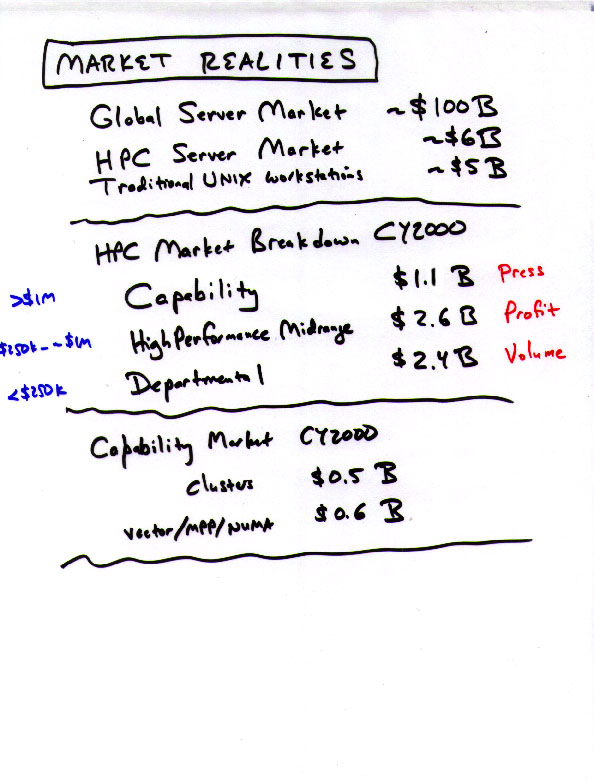 MARKET REALITIES
Global Server Market ~$100B
HPC Server Market ~$6B
Traditional UNIX workstations ~$5B
HPC Market Breakdown CY2000
>$1M Capability $1.1 B Press
$250K - ~$1M High Performance Midrange $2.6 B Profit
<$250K Departmental $2.4 B Volume
Capability Market CY2000
clusters $0.5 B
vector/MPP/NUMA $0.6 B